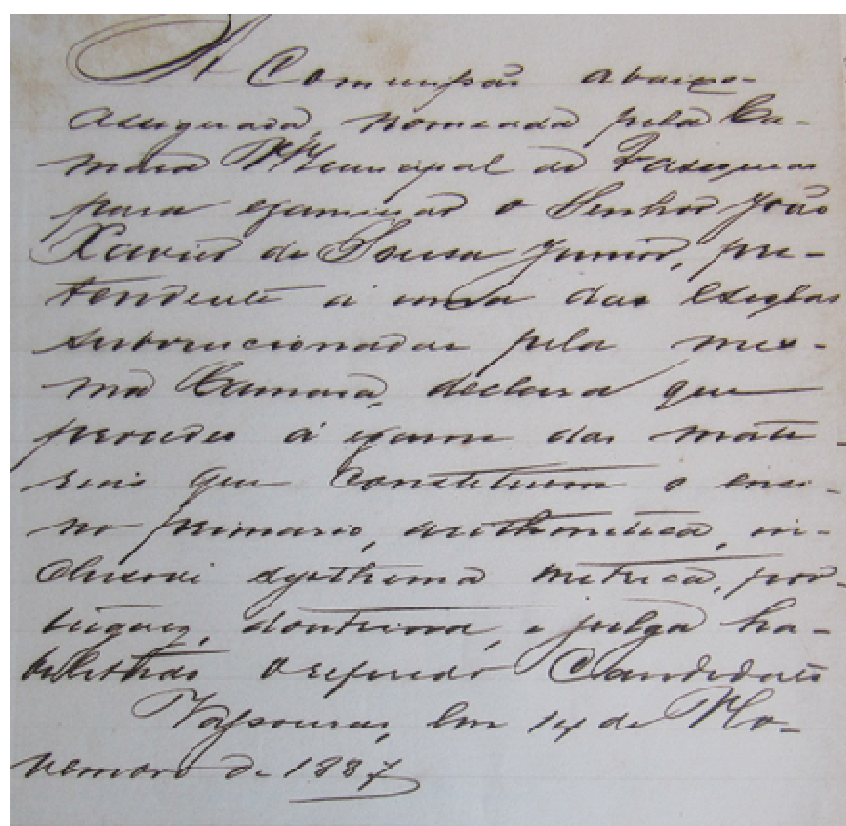 A Comissão abaixo-
assignada, nomeada pela Ca-
mara Municipal de Vassouras
para examinar o Senhor João
Xavier de Sousa Junior, pre-
tendente á uma das escolas
subvencionadas pela mes-
ma Camara, declara que
procedeu á exame das mate-
rias que constituem o ensi-
no primario, arithmetica, in-
clusive systhema metrico, por-
tuguez, doutrina, e julga ha-
bilitado o referido Candidato
Vassouras, Em 14 de No-
vembro de 1887